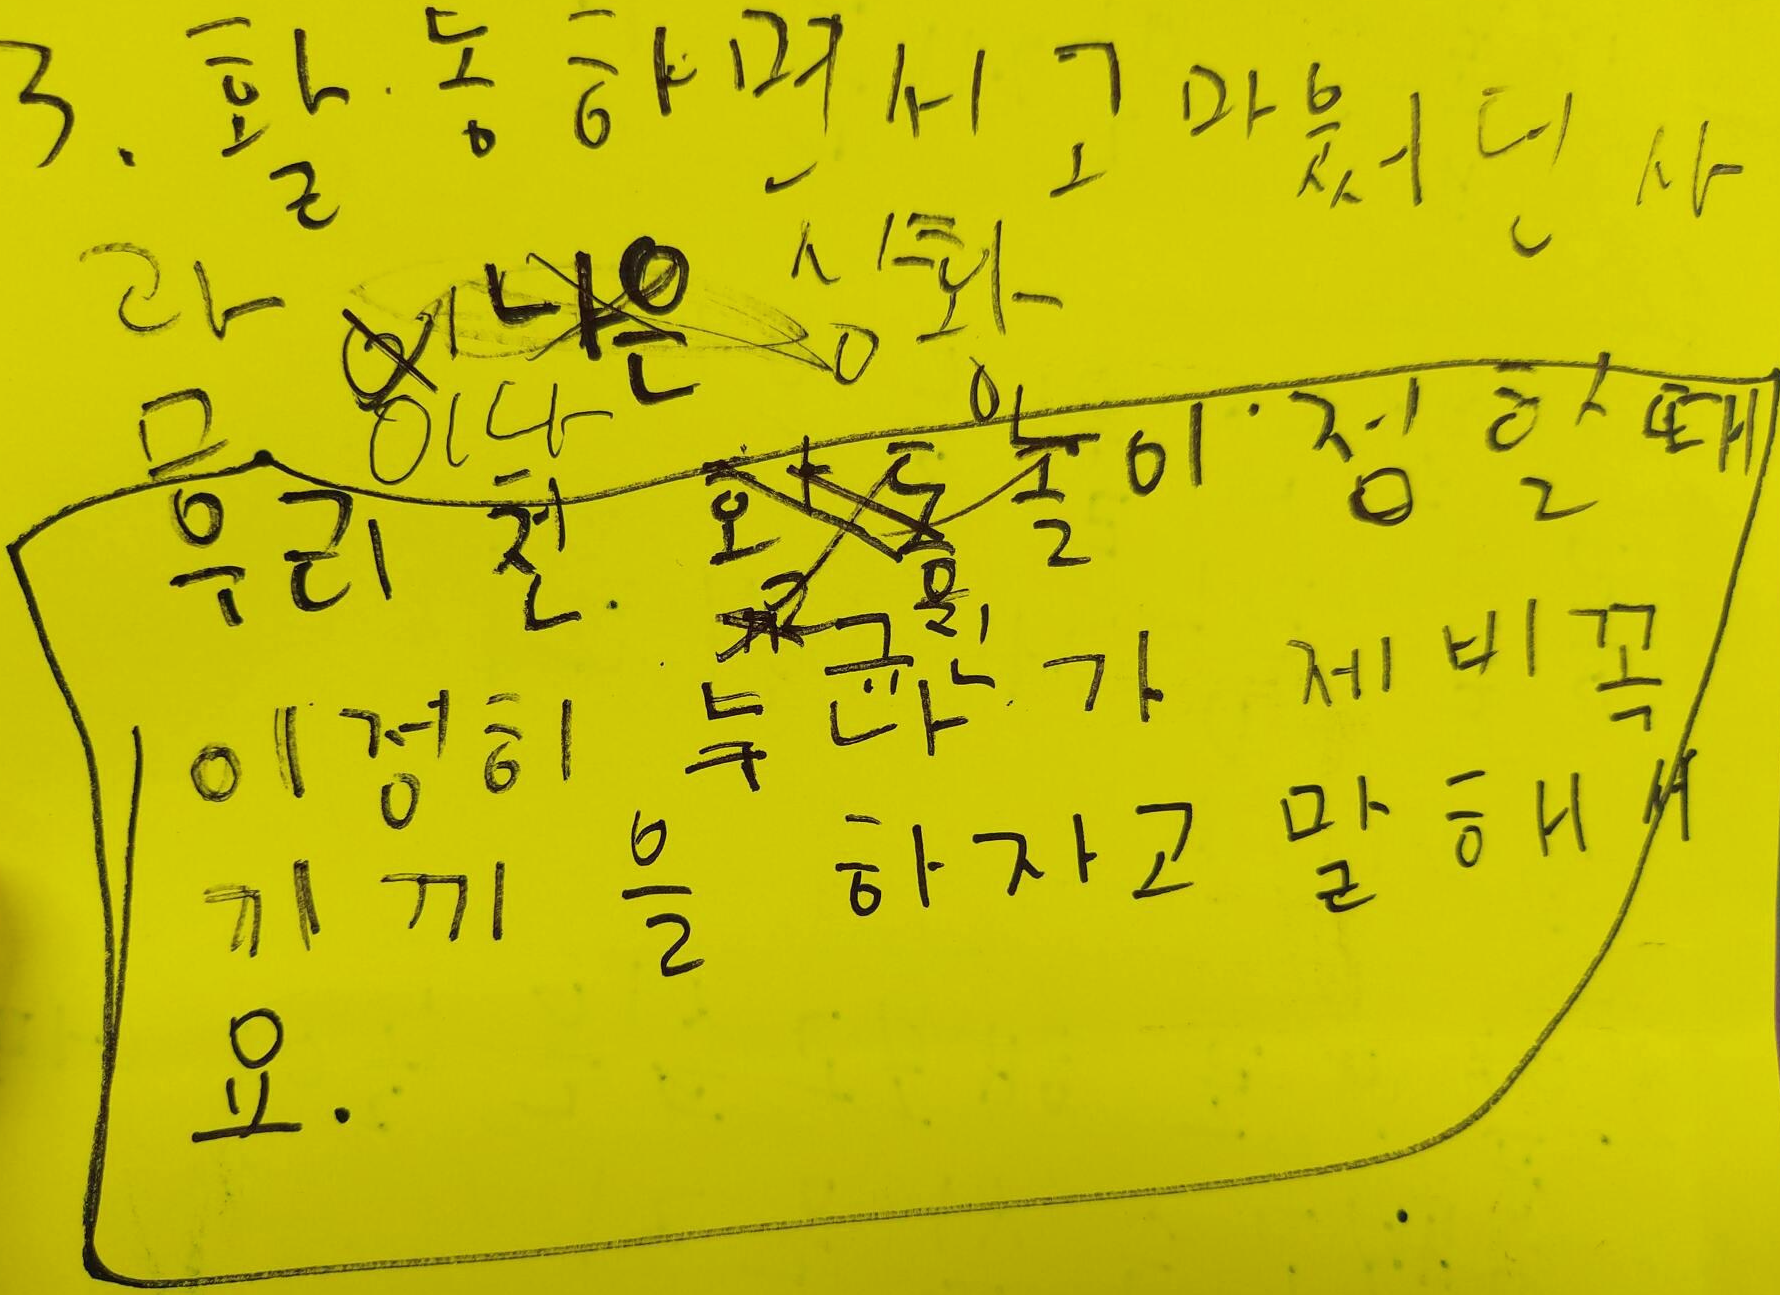 3. 활동하면서 고마웠던 사
라
이나 상황
믕
우리 전 놀이 정할 때
이정히 누나가 제비꼭
기끼을 하자고 말해서
요.